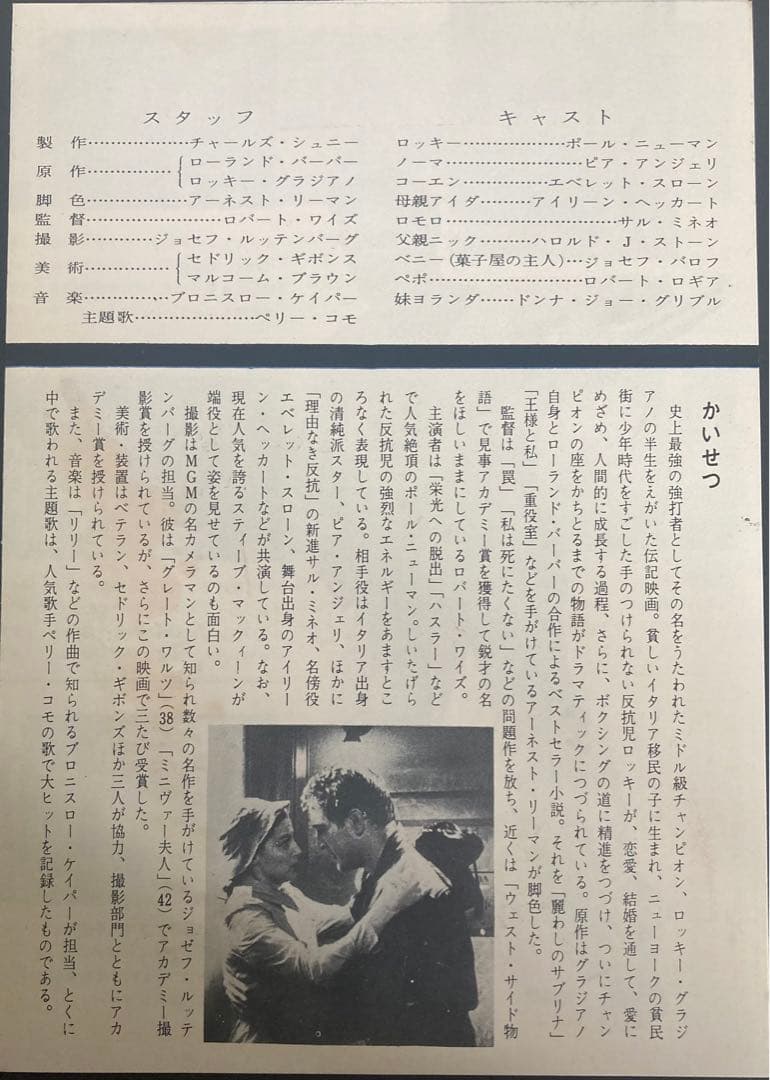 スタッフ
製作………………チャールズ・シュニー
原作……………{ローランド・バーバー
ロッキー・グラジアノ
脚色………………アーネスト・リーマン
監督……………………ロバート・ワイズ
撮影…………ジョセフ・ルッテンバーグ
美術……………{セドリック・ギボンス
マルコーム・ブラウン
音楽……………ブロニスロー・ケイパー
主題歌…………………ペリー・コモ
キャスト
ロッキー……………………ポール・ニューマン
ノーマ………………………ピア・アンジェリ
コーエン………………エベレット・スローン
母親アイダ………アイリーン・ヘッカート
ロモロ……………………………サル・ミネオ
父親ニック………ハロルド・J・ストーン
ベニー(菓子屋の主人)…ジョセフ・バロフ
ペポ…………………………ロバート・ロギア
妹ヨランダ……ドンナ・ジョー・グリブル
かいせつ
史上最強の強打者としてその名をうたわれたミドル級チャンピオン、ロッキー・グラジ
アノの半生をえがいた伝記映画。貧しいイタリア移民の子に生まれ、ニューヨークの貧民
街に少年時代をすごした手のつけられない反抗児ロッキーが、恋愛、結婚を通して、愛に
めざめ、人間的に成長する過程、さらに、ボクシングの道に精進をつづけ、ついにチャン
ピオンの座をかちとるまでの物語がドラマティックにつづられている。原作はグラジアノ
自身とローランド・バーバーの合作によるベストセラー小説。それを「麗わしのサブリナ」
「王様と私」「重役室」などを手がけているアーネスト・リーマンが脚色した。
監督は「罠」「私は死にたくない」などの問題作を放ち、近くは「ウェスト・サイド物
語」で見事アカデミー賞を獲得して鋭才の名
をほしいままにしているロバート・ワイズ。
主演者は「栄光への脱出」「ハスラー」など
で人気絶頂のポール・ニューマン。しいたげら
れた反抗児の強烈なエネルギーをあますとこ
ろなく表現している。相手役はイタリア出身
の清純派スター、ピア・アンジェリ、ほかに
「理由なき反抗」の新進サル・ミネオ、名傍役
エベレット・スローン、舞台出身のアイリー
ン・ヘッカートなどが共演している。なお、
現在人気を誇るスティーブ・マックィーンが
端役として姿を見せているのも面白い。
撮影はMGMの名カメラマンとして知られ数々の名作を手がけているジョゼフ・ルッテ
ンバーグの担当。彼は「グレート・ワルツ」(38)「ミニヴァー夫人」(42)でアカデミー撮
影賞を授けられているが、さらにこの映画で三たび受賞した。
美術・装置はベテラン、セドリック・ギボンズほか三人が協力、撮影部門とともにアカ
デミー賞を授けられている。
また、音楽は「リリー」などの作曲で知られるブロニスロー・ケイパーが担当、とくに
中で歌われる主題歌は、人気歌手ペリー・コモの歌で大ヒットを記録したものである。